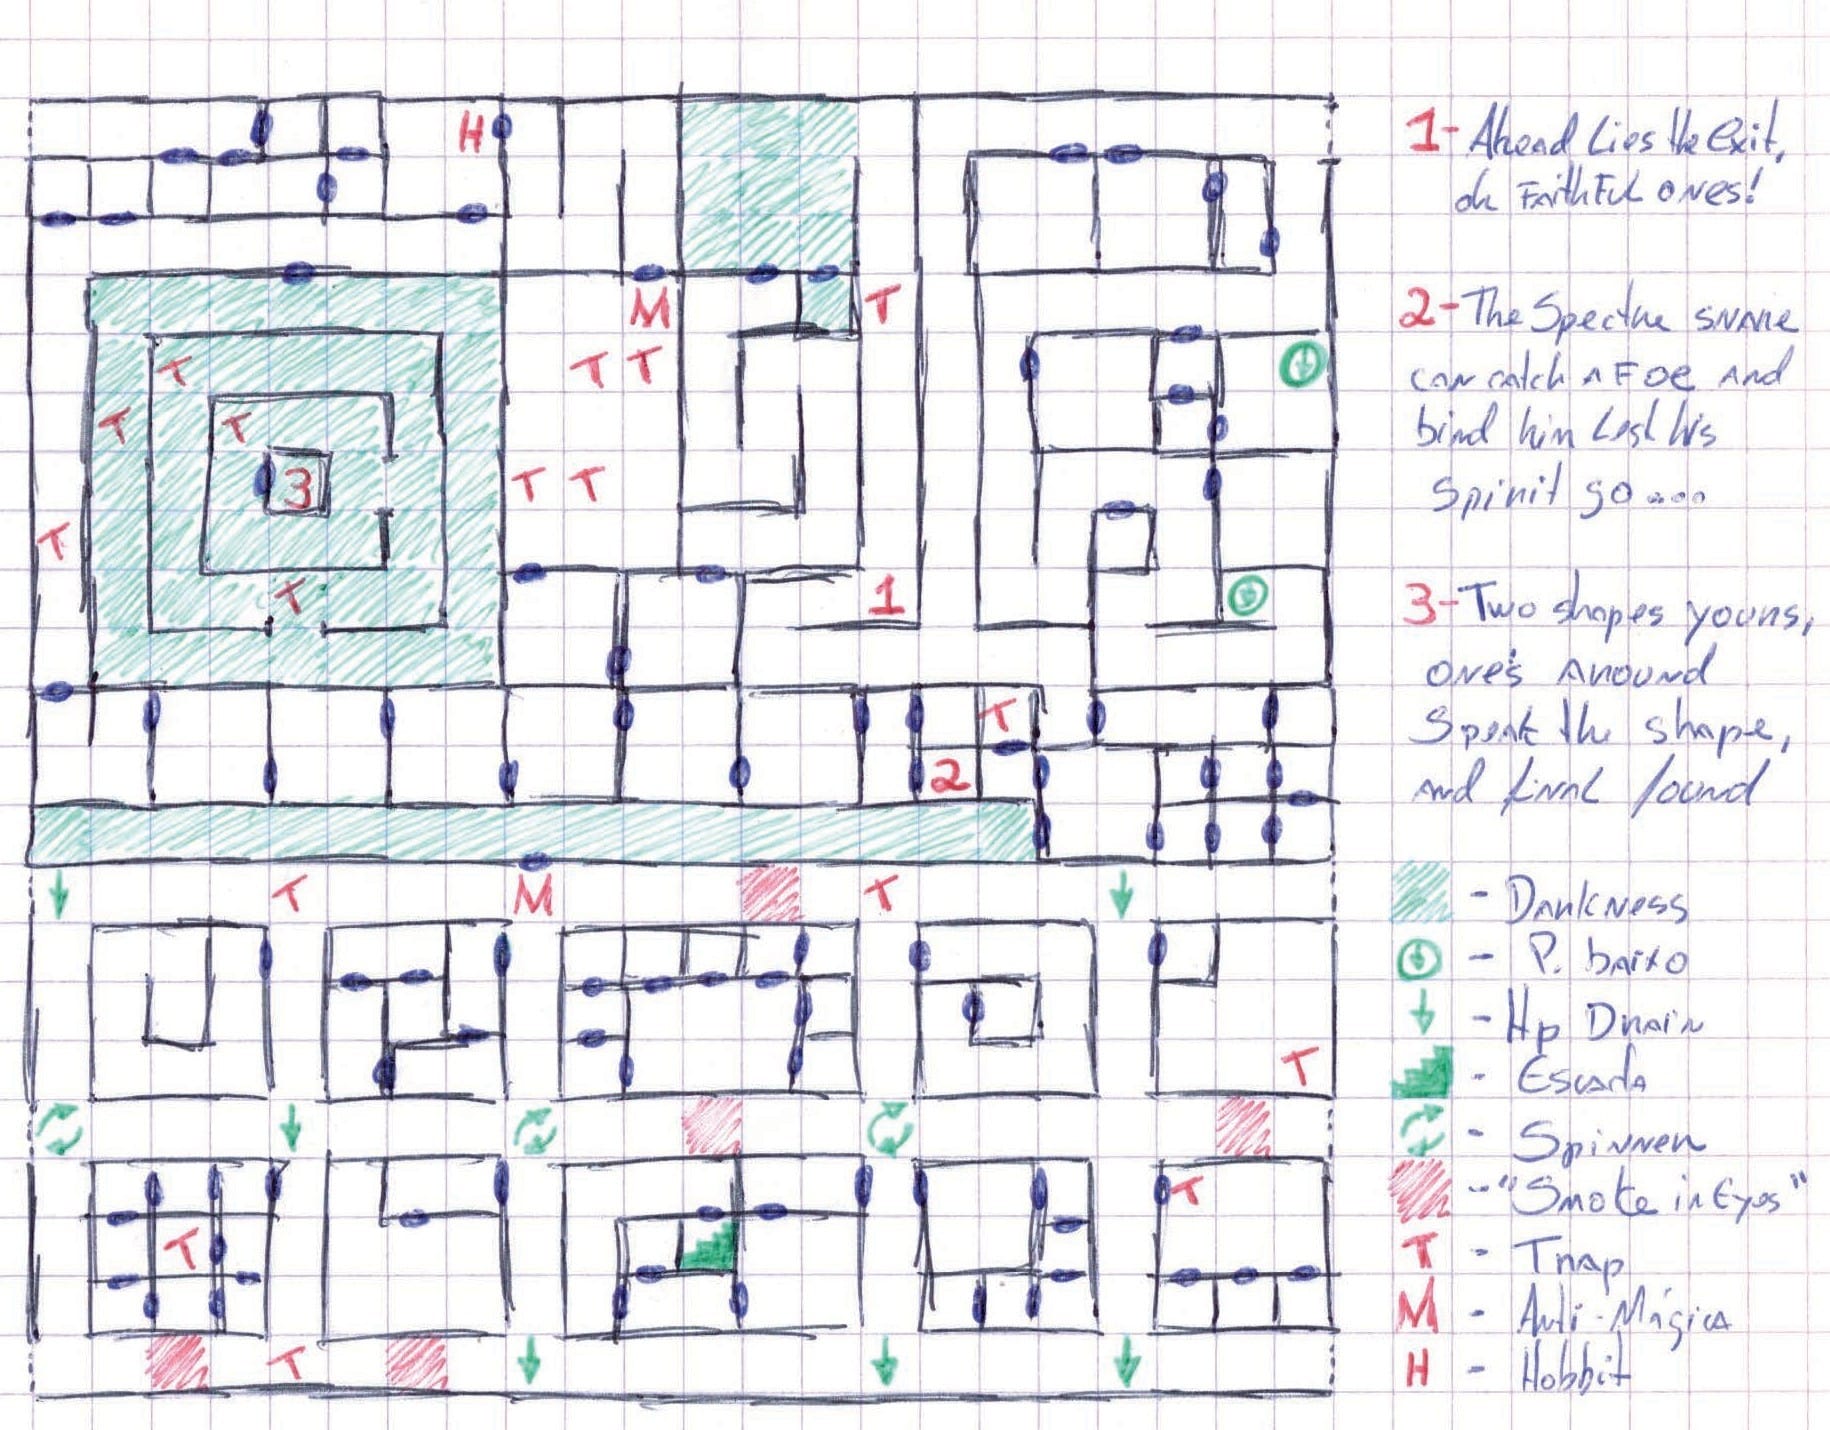 H
M T
T T T
T T
3 T T
T
T 1
T
2
T M T
T
T
T
T
1- Ahead Lies the Exit,
oh Faithful ones!
2- The Spectre snare
can catch a Foe and
bind him Lest his
Spirit go....
3- Two shapes yours,
one's around
Speak the shape,
and final found
- Darkness
- P. baixo
- Hp Drain
- Escada
- Spinner
- "Smoke in Eyes"
T - Trap
M - Anti-Mágica
H - Hobbit